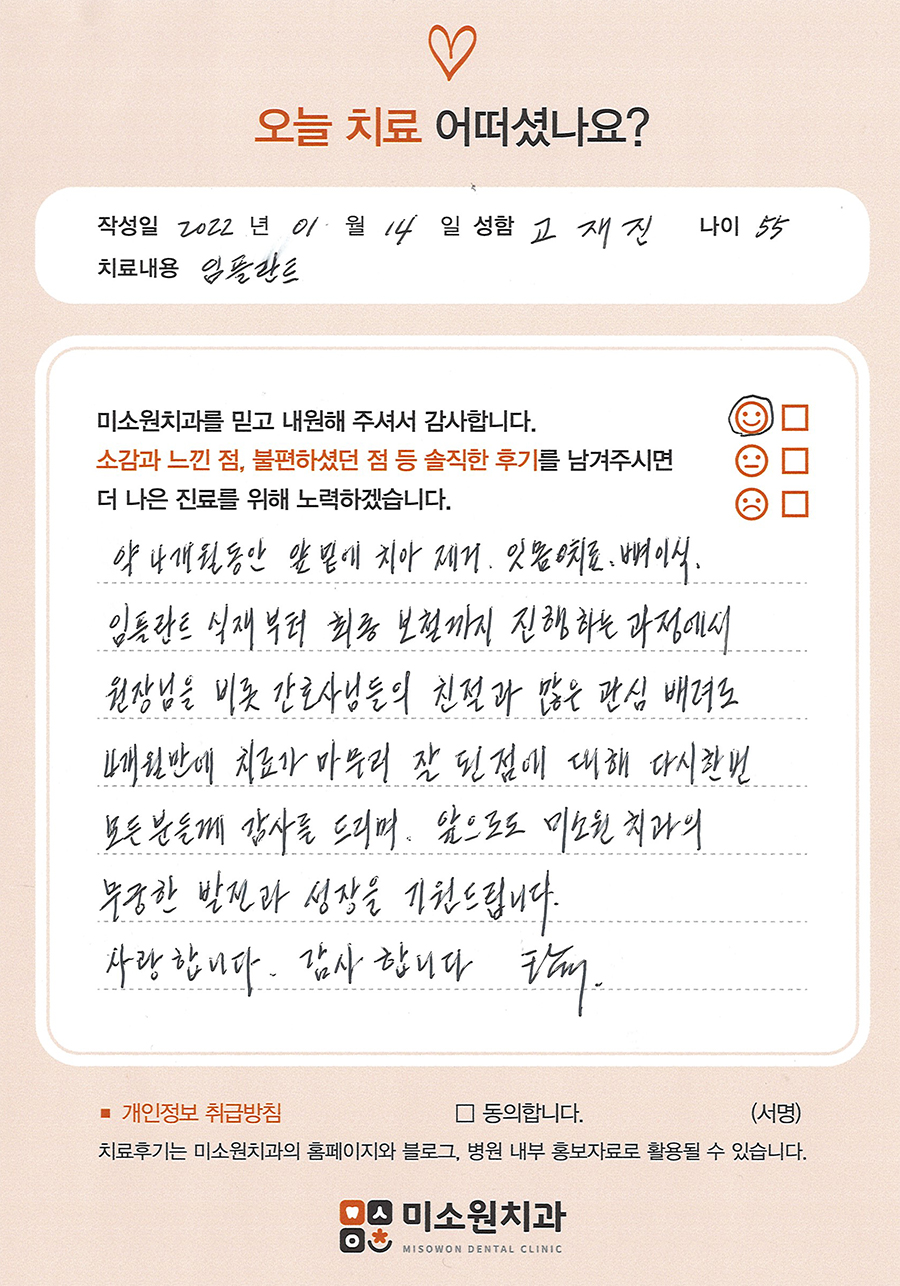 오늘 치료 어떠셨나요?
작성일 2022 년 01 월 14 일 성함 고 재 진 나이 55
치료내용 임플란트
미소원치과를 믿고 내원해 주셔서 감사합니다.
소감과 느낀 점, 불편하셨던 점 등 솔직한 후기를 남겨주시면
더 나은 진료를 위해 노력하겠습니다.
약 4개월동안 앞 밑에 치아 제거. 잇몸치료. 뼈이식.
임플란트 식재부터 최종 보철까지 진행하는 과정에서
원장님을 비롯 간호사님들의 친절과 많은 관심 배려로
4개월만에 치료가 마무리 잘 된점에 대해 다시한번
모든분들께 감사를 드리며. 앞으로도 미소원 치과의
무궁한 발전과 성장을 기원드립니다.
사랑합니다. 감사 합니다
■ 개인정보 취급방침 □ 동의합니다. (서명)
치료후기는 미소원치과의 홈페이지와 블로그, 병원 내부 홍보자료로 활용될 수 있습니다.
미소원치과
MISOWON DENTAL CLINIC